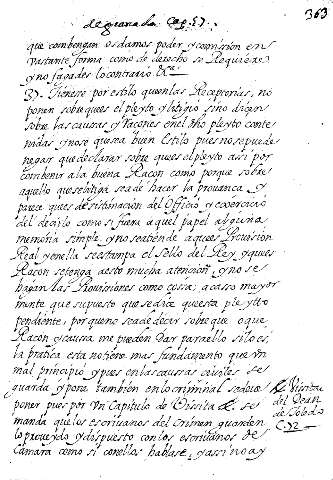 de granada Cap. 57.
363
que combengan os damos poder y comision en
vastante forma como de derecho se Requiere
y no fagades lo contrario &ra.
37 Tienese por estilo que en las Receptorias, no
ponen sobre que es el pleyto y litigio sino dicen
sobre las causas y racones en el dho pleyto conte
nidas, y no se que sea buen Estilo pues no se puede
negar que declarar sobre que es el pleyto assi por
combenir a la buena Racon como porque sobre
aquello que se litiga se a de hacer la provanca y
parece que es desistimacion del Officio y
el decirlo como si fuera aquel papel alguna
memoria simple, y no se atiende a que es Provision
Real y en ella se estampa el sello del Rey, y que es
Racon se tenga a esto mucha atencion, y no se
hagan las Provissiones como cosa acaso mayor
mente que supuesto que se dice que esta pleytto
pendiente, por que no se a de decir sobre que o que
Racon y causa me pueden Dar para ello si lo es,
la practica esta no tiene mas fundamento que Vn
mal principio y pues en las caussas civiles se
guarda y pone tambien en lo criminal se deve
poner pues por Vn Capitulo de Vissita se
manda que los escrivanos del Crimen guarden
lo proveydo y dispuesto con los escrivanos de
Camara como si con ellos hablase, y assi no ay
Vissita
del Dean
de Toledo
C. 72